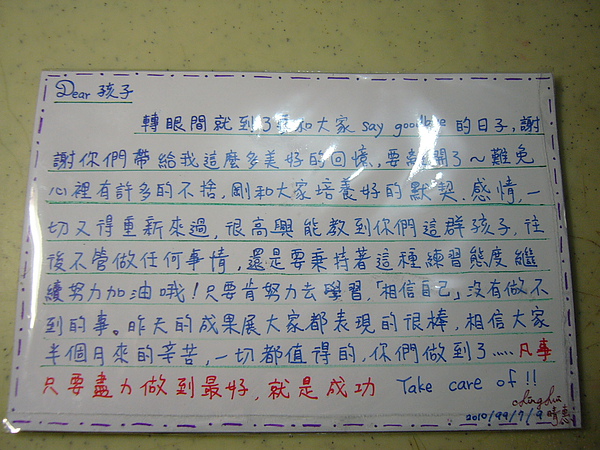 Dear 孩子
轉眼間就到了要和大家 say goodbye 的日子，謝
謝你們帶給我這麼多美好的回憶，要離開了～難免
心裡有許多的不捨，剛和大家培養好的默契、感情，一
切又得重新來過，很高興能教到你們這群孩子，往
後不管做任何事情，還是要秉持著這種練習態度繼
續努力加油哦！只要肯努力去學習，「相信自己」沒有做不
到的事。昨天的成果展大家都表現的很棒，相信大家
半個月來的辛苦，一切都值得的，你們做到了.....凡事
只要盡力做到最好，就是成功 Take care of!!
2010/99/7/9